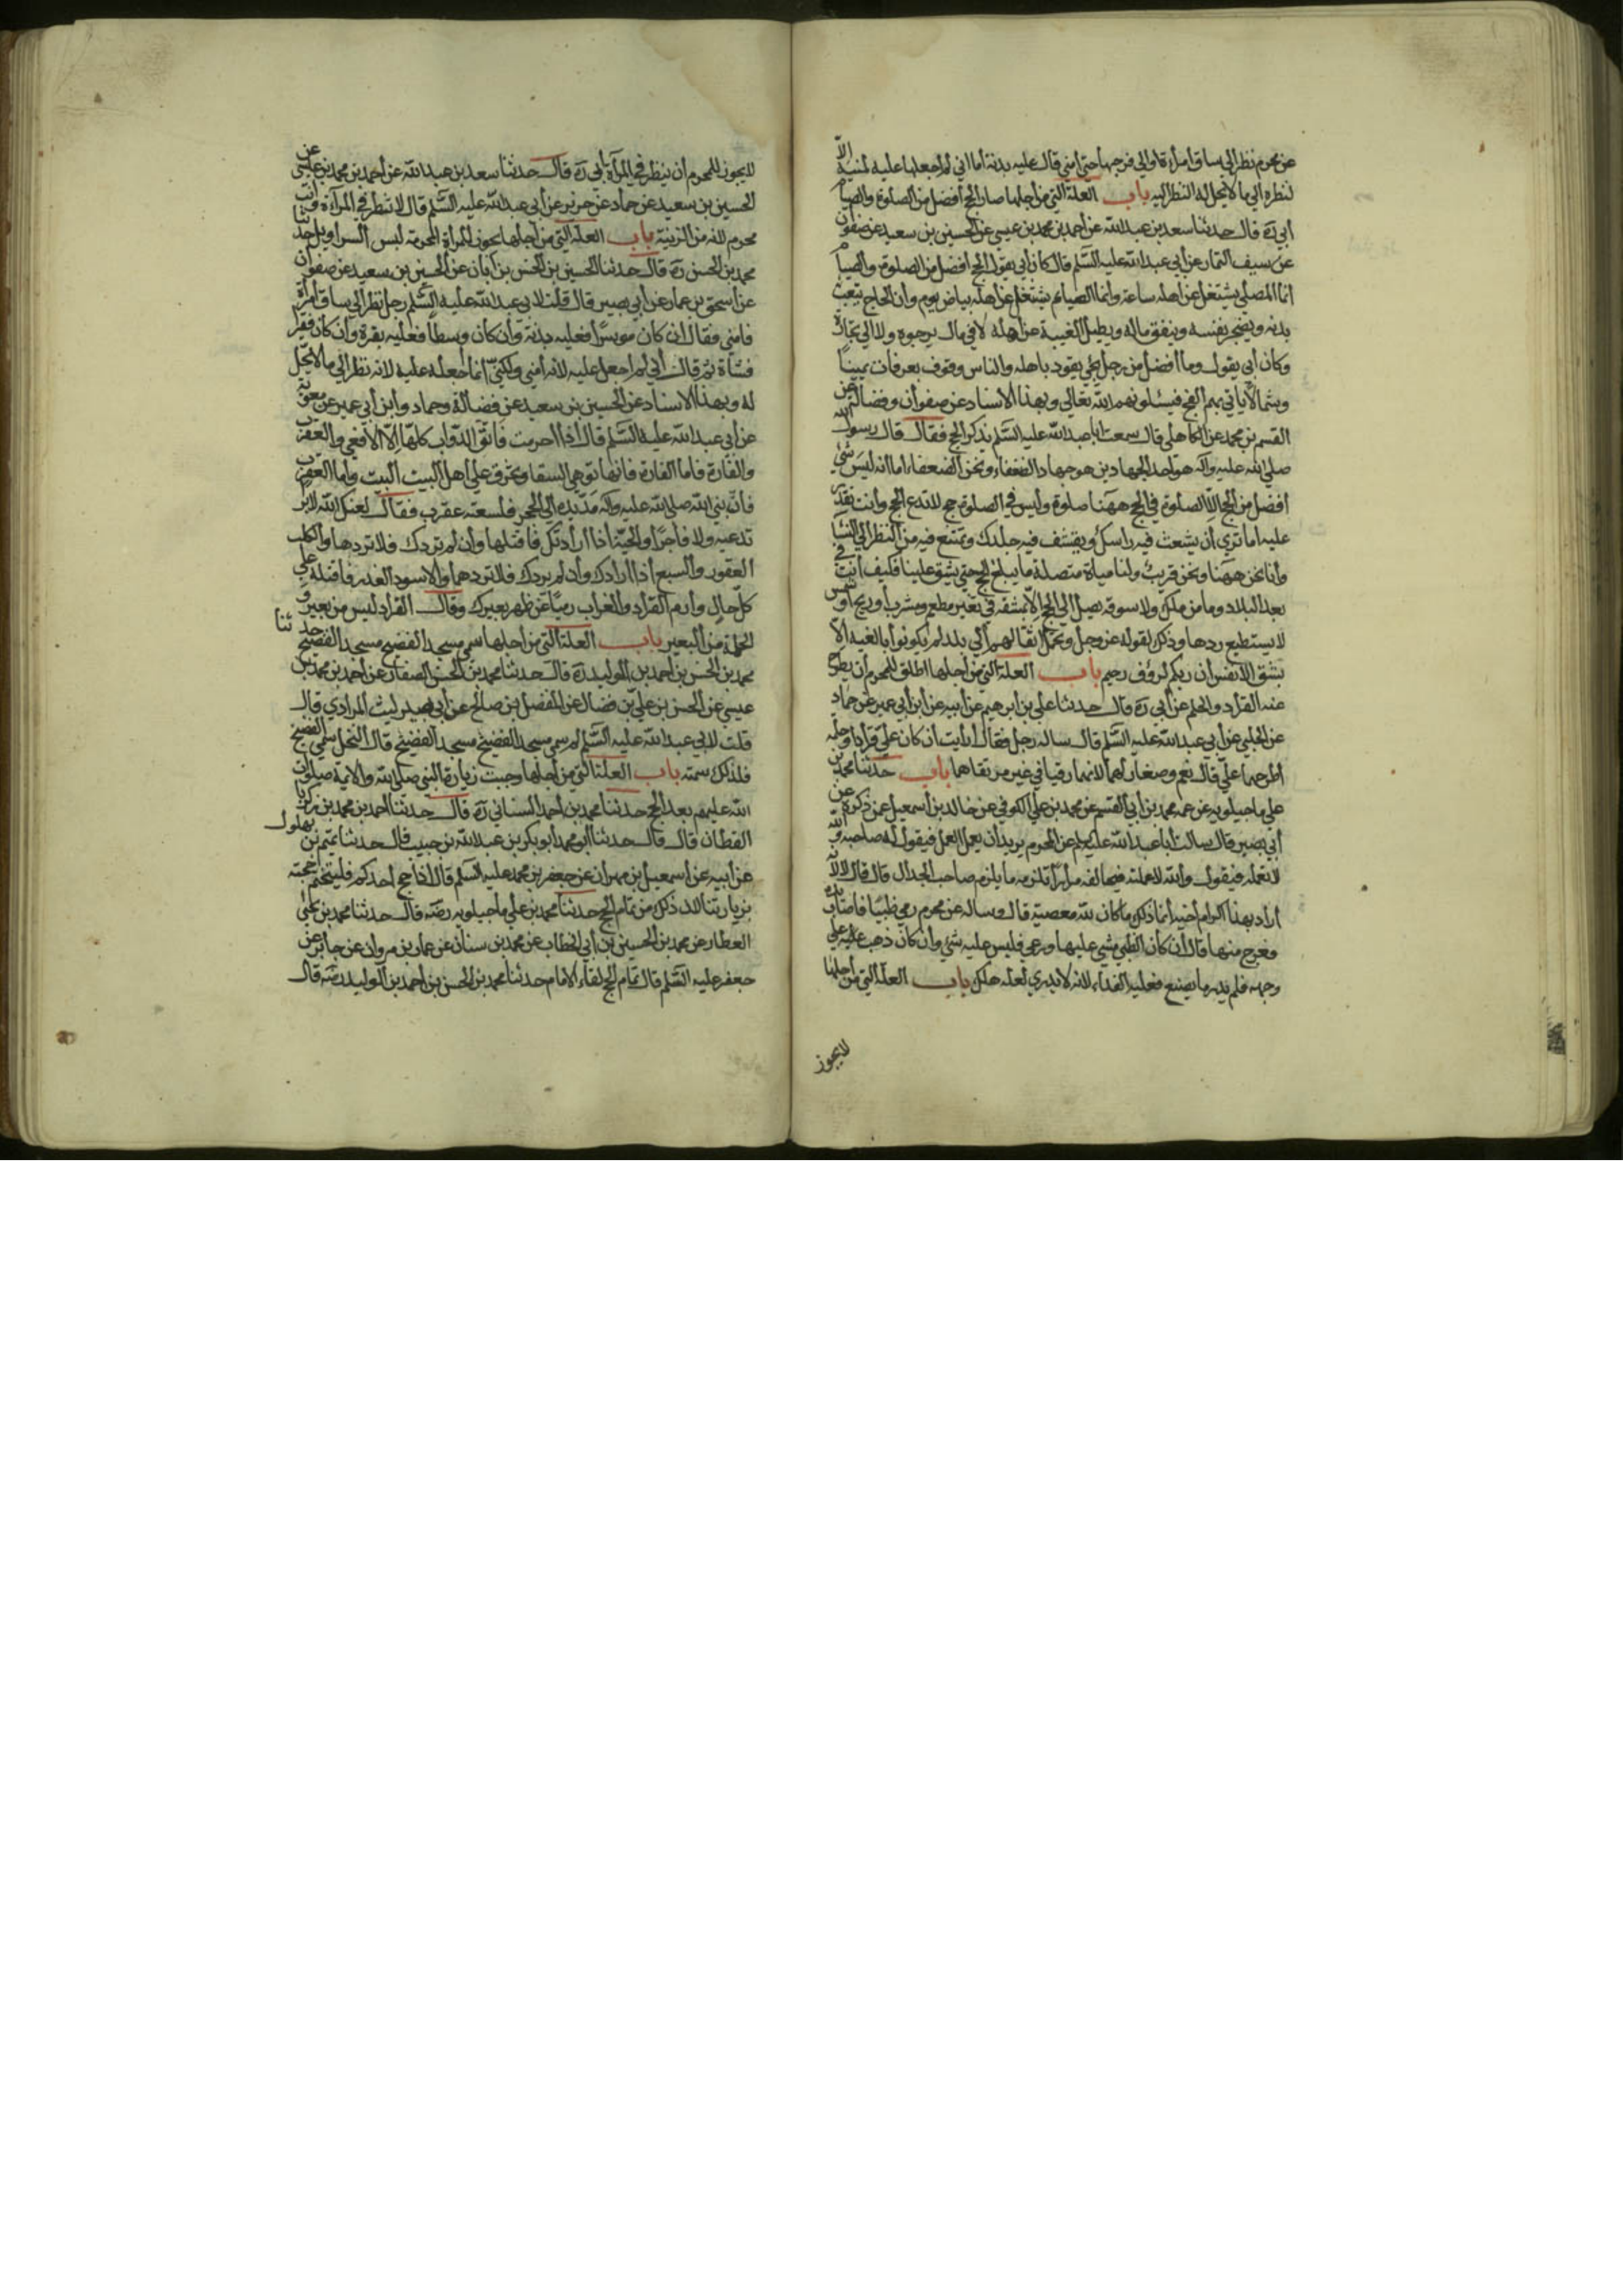 عن محرم نظر الى ساق امراة او الى فرجها حتى امنى قال عليه بدنة أما انى لم اجعلها عليه لمنيه الا
لنظره الى ما لا يحل له النظر اليه باب العلة التى من اجلها صار الحج افضل من الصلوة والصيام
أبى ره قال حدثنا سعد بن عبد الله عن احمد بن محمد بن عيسى عن الحسين بن سعيد عن صفوان
عن سيف التمار عن أبى عبد الله عليه السلم قال كان أبى يقول الحج افضل من الصلوة والصيام
انما المصلى يشتغل عن اهله ساعة وانما الصيام يشتغل عن اهله بياض يوم وان الحاج يتعب
بدنه ويضجر نفسه وينفق ماله ويطيل الغيبة عن اهله لا فى مال يرجوه ولا الى تجارة
وكان أبى يقول وما افضل من رجل يجئ يقود باهله والناس وقوف بعرفات يمينا
وشمالا ياتى بهم الفج فيسئلو بهم الله تعالى وبهذا الاسناد عن صفوان وفضالة عن
القسم بن محمد عن الكاهلى قال سمعت ابا عبد الله عليه السلم يذكر الحج فقال قال رسول الله
صلى الله عليه واله هو احد الجهادين هو جهاد الضعفاء ونحن الضعفاء اما انه ليس شئ
افضل من الحج الا الصلوة فى الحج ههنا صلوة وليس فى الصلوة حج لا تدع الحج وانت تقدر
عليه اما ترى أن يشعث فيه راسك ويقشف فيه جلدك وتمتنع فيه من النظر الى النساء
وأنا نحن ههنا ونحن قريب ولنا مياه متصلة ما يبلغ الحج حتى يشق علينا فكيف أنت فى
بعد البلاد وما من ملك ولا سوقة يصل الى الحج الا بمشقة فى تغيير مطعم ومشرب أو ريح أو شمس
لا يستطيع ردها وذلك لقوله عز وجل وتحمل اثقالهم الى بلد لم يكونوا بالغيه الا
بشق الانفس ان ربكم لرؤف رحيم باب العلة التى من اجلها اطلق للمحرم أن يطرح
عنه القراد والحلم عن أبى ره قال حدثنا على بن ابرهيم عن أبيه عن ابن أبى عمير عن حماد
عن الحلبى عن أبى عبد الله عليه السلم قال ساله رجل فقال أرأيت ان كان على قراد او حلمة
اطرحهما عنى قال نعم وصغار لهما لانهما رقيا فى غير مرتقاهما باب حدثنا محمد بن
على ماجيلويه عن عمه محمد بن أبى القسم عن محمد بن على الكوفى عن خالد بن اسمعيل عمن ذكره عن
أبى بصير قال سالت ابا عبد الله عليه السلم عن المحرم يريد أن يعمل العمل فيقول له صاحبه والله
لا تعمله فيقول والله لاعملنه فيحالفه مرارا أتلزمه ما يلزم صاحب الجدال قال قال لا لانه
أراد بهذا اكرام أخيه انما ذلك ما كان لله معصية قال وساله عن محرم رمى ظبيا فاصاب يده
فعرج منها قال ان كان الظبى مشى عليها ورعى فليس عليه شئ وان كان ذهب على
وجهه فلم يدر ما يصنع فعليه الفداء لانه لا يدرى لعله هلك باب العلة التى من اجلها
لا يجوز
لا يجوز للمحرم أن ينظر فى المرآة أبى ره قال حدثنا سعد بن عبد الله عن أحمد بن محمد بن عيسى عن
الحسين بن سعيد عن حماد عن حريز عن أبى عبد الله عليه السلم قال لا تنظر فى المرآة وانت
محرم لانه من الزينة باب العلة التى من اجلها يجوز للمراة المحرمة لبس السراويل حدثنا
محمد بن الحسن ره قال حدثنا الحسين بن الحسن بن ابان عن الحسين بن سعيد عن صفوان
عن اسحق بن عمار عن أبى بصير قال قلت لابى عبد الله عليه السلم رجل نظر الى ساق امراة
فامنى فقال ان كان موسرا فعليه بدنة وأن كان وسطا فعليه بقرة وان كان فقير
فشاة ثم قال أنى لم اجعل عليه لانه امنى ولكنى انما جعله عليه لانه نظر الى ما لا يحل
له وبهذا الاسناد عن الحسين بن سعيد عن فضالة وحماد وابن أبى عمير عن معوية
عن أبى عبد الله عليه السلم قال اذا احرمت فاتق الدواب كلها الا الافعى والعقرب
والفارة فاما الفارة فانها توهى السقا وتخرق على اهل البيت البيت واما العقرب
فان نبى الله صلى الله عليه واله مد يده الى الحجر فلسعته عقرب فقال لعنك الله لا بر
تدعيه ولا فاجرا والحية اذا أرادتك فاقتلها وأن لم تردك فلا تردها والكلب
العقور والسبع اذا ارادك وأن لم يردك فلا تردهما والاسود الغدر فاقتله على
كل حال وارم القراد والغراب رميا عن ظهر بعيرك وقال القراد ليس من بعير و
الحلمة من البعير باب العلة التى من اجلها سمى مسجد الفضيخ مسجد الفضيخ حدثنا
محمد بن الحسن بن احمد بن الوليد ره قال حدثنا محمد بن الحسن الصفار عن احمد بن محمد بن
عيسى عن الحسن بن على بن فضال عن المفضل بن صالح عن أبى بصير ليث المرادى قال
قلت لابى عبد الله عليه السلم لم سمى مسجد الفضيخ مسجد الفضيخ قال النخل سمى الفضيخ
فلذلك سمته باب العلة التى من اجلها وجبت زيارة النبى صلى الله والائمة صلوات
الله عليهم بعد الحج حدثنا محمد بن احمد السنانى ره قال حدثنا احمد بن محمد بن زكريا
القطان قال قال حدثنا ابو محمد أبو بكر بن عبد الله بن حبيب قال حدثنا تميم بن بهلول
عن أبيه عن اسمعيل بن مهران عن جعفر بن محمد عليه السلم قال اذا حج أحدكم فليختم حجته
بزيارتنا لان ذلك من تمام الحج حدثنا محمد بن على ماجيلويه رضه قال حدثنا محمد بن يحيى
العطار عن محمد بن الحسين بن أبى الخطاب عن محمد بن سنان عن عمار بن مروان عن جابر عن
جعفر عليه السلم قال تمام الحج لقاء الامام حدثنا محمد بن الحسن بن احمد بن الوليد رضه قال